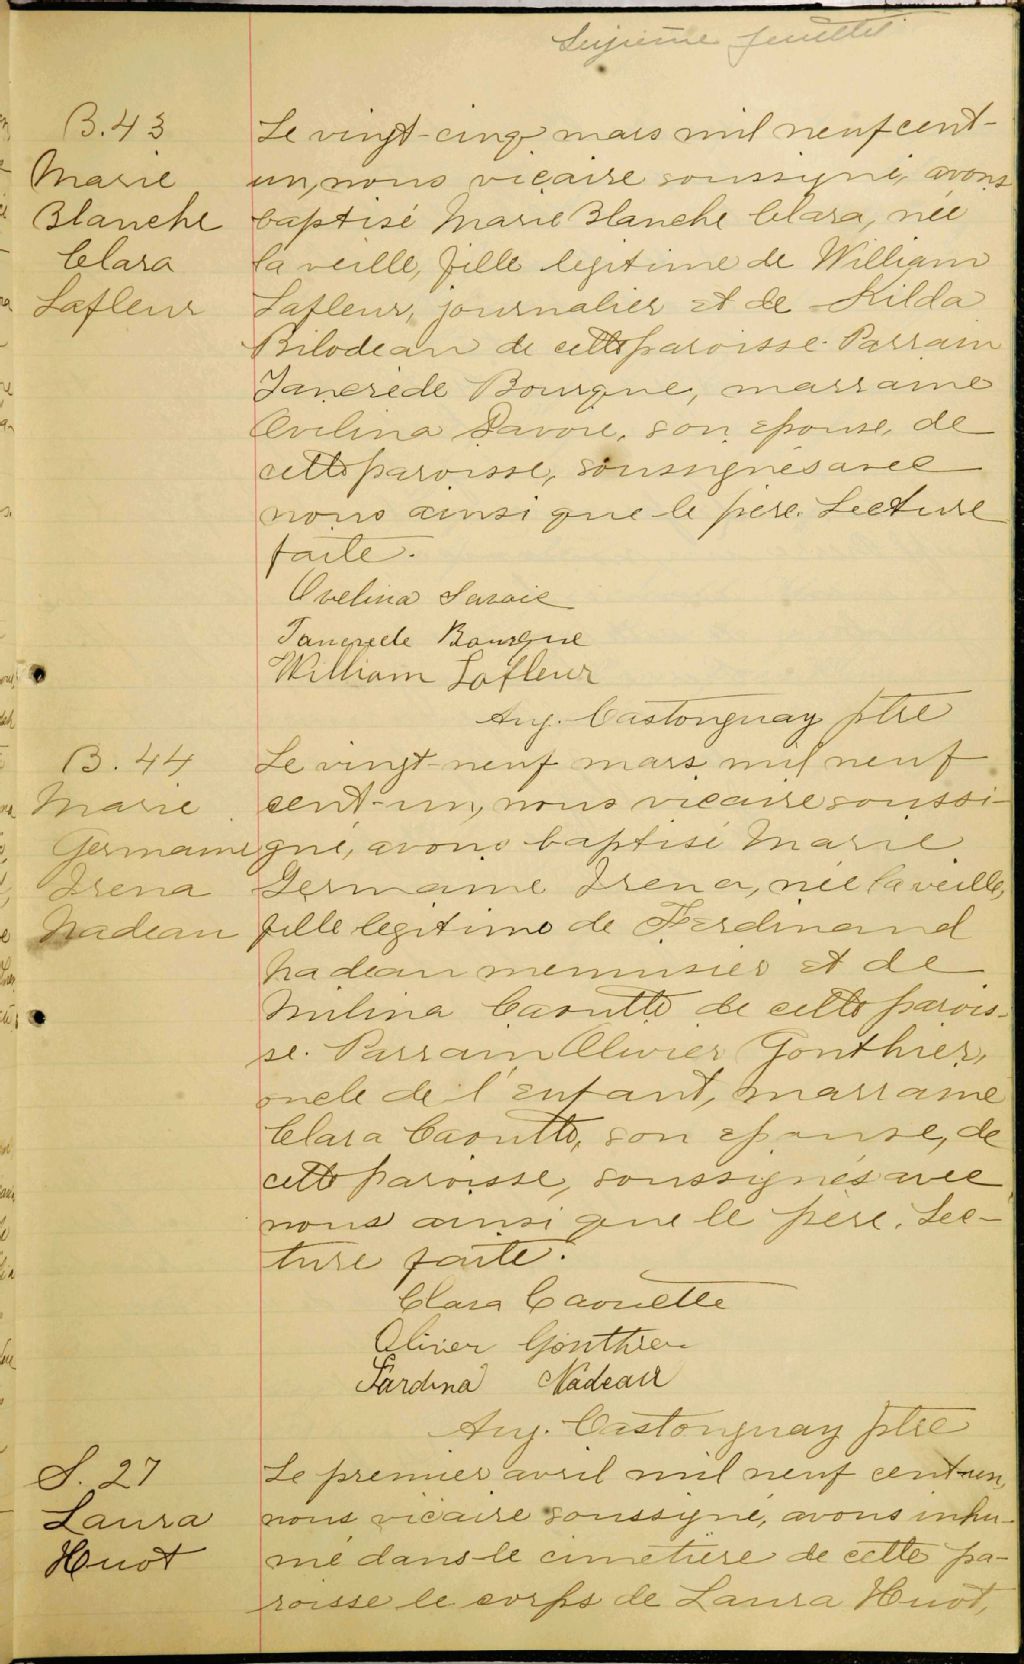 feuillet
B.43
Marie
Blanche
Clara
Lafleur
Le vingt-cinq mars mil neuf cent-
un, nous vicaire soussigné, avons
baptisé Marie Blanche Clara, née
la veille, fille legitime de William
Lafleur, journalier et de Kilda
Bilodeau de cette paroisse. Parrain
Tancrède Bourque, marraine
Ovelina Savoie, son epouse, de
cette paroisse, soussignés avec
nous ainsi que le père. Lecture
faite.
Ovelina Savoie
Tancrede Bourque
William Lafleur
Aug. Castonguay ptre
B. 44
Marie
Germaine
Irena
Nadeau
Le vingt-neuf mars mil neuf
cent-un, nous vicaire soussi-
gné, avons baptisé Marie
Germaine Irena, née la veille,
fille legitime de Ferdinand
Nadeau menuisier et de
Milina Caoutte de cette parois-
se. Parrain Olivier Gonthier,
oncle de l'enfant, marraine
Clara Caoutte, son epouse, de
cette paroisse, soussignés avec
nous ainsi que le père. Lec-
ture faite.
Clara Caouette
Olivier Gonthier
Fardina Nadeau
Aug. Castonguay ptre
S. 27
Laura
Huot
Le premier avril mil neuf cent-un,
nous vicaire soussigné, avons inhu-
mé dans le cimetière de cette pa-
roisse le corps de Laura Huot,